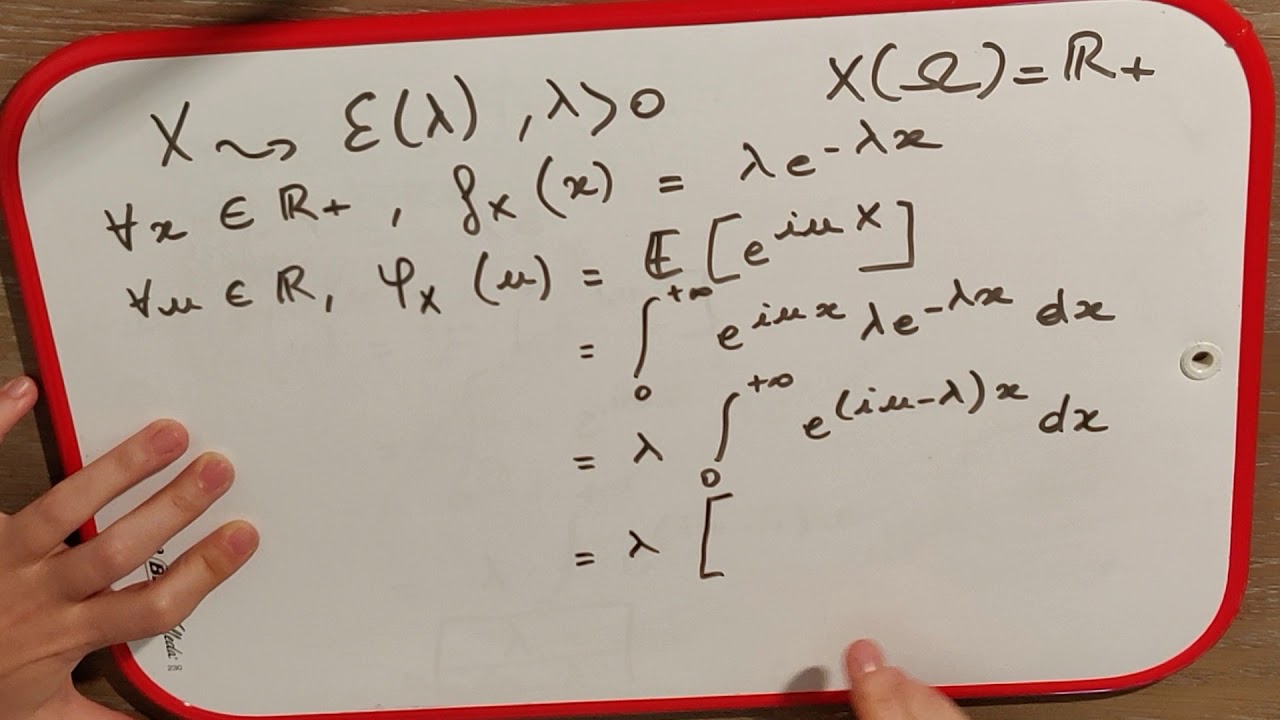 X ↝ ℰ(λ), λ>0 X(Ω) = ℝ+
∀x ∈ ℝ+, f_X(x) = λe^{-λx}
∀u ∈ ℝ, φ_X(u) = 𝔼[e^{iuX}]
= ∫_0^{+∞} e^{iux} λe^{-λx} dx
= λ ∫_0^{+∞} e^{(iu-λ)x} dx
= λ [